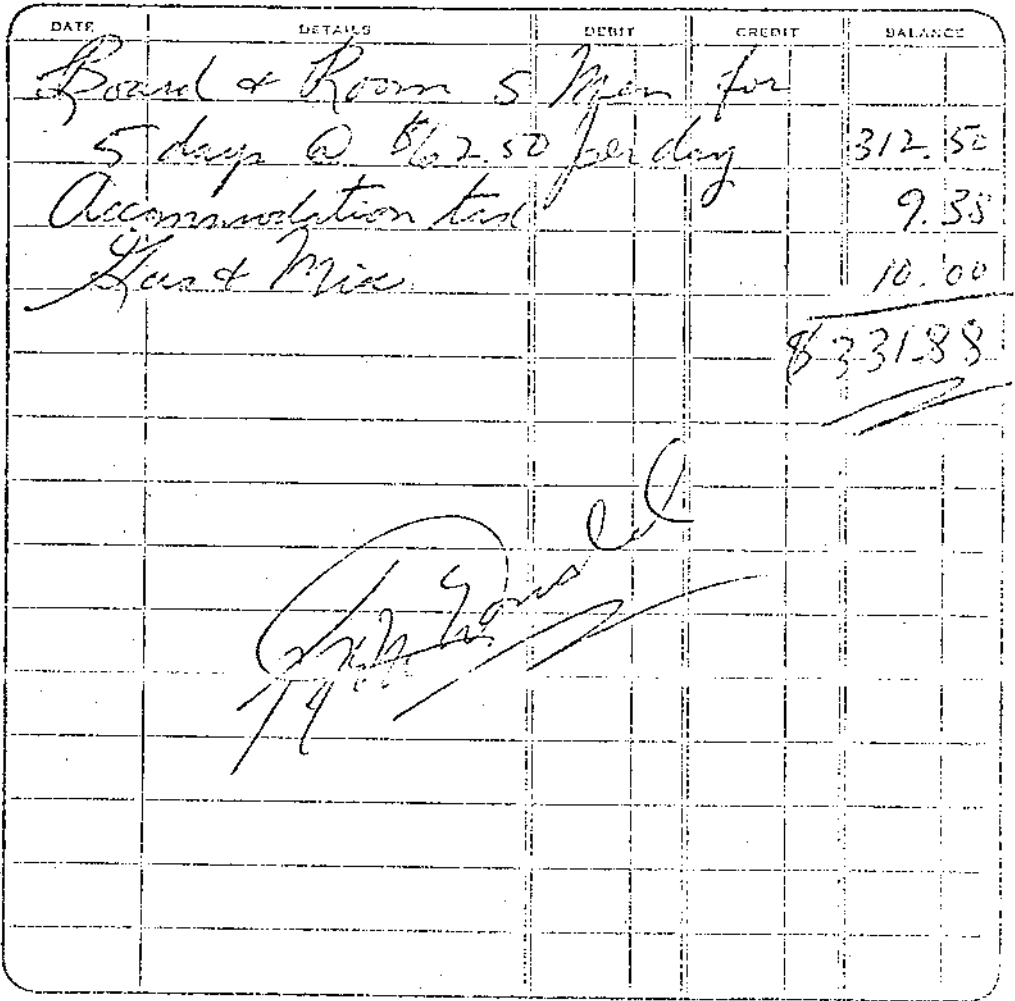 DATE DETAILS DEBIT CREDIT BALANCE
Board & Room 5 Men for
5 days @ $62.50 per day 312.50
Accommodation tax 9.38
Gas & Misc 10.00
$331.88